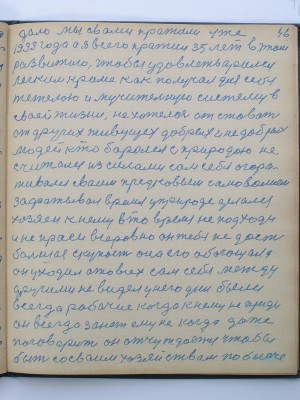 дало мы своим пражили уже 46
1933 года а я всего пражил 35 лет в таком
развитию, чтобы удовлетварился
легким крама как получал для себя
тежолою и мучительную систему в
своей жизни, не хотелося отстовать
от других живущих добрых и недобрых
людей кто боролся с природаю не
считался из силами сам себя огора
живался своим предковым самоволием
захватывал время у природе делался
хозяен к нему в то время не подходи
и не праси всеровно он тебя не даст
большая скупость она его обогощала
он уходил ото всех сам себя между
другими не видел у него дни были
всегда рабочие когда к нему не приди
он всегда занет ему не когда даже
поговорит он отчуждается чтобы
быт со своим хозяйствам побыче